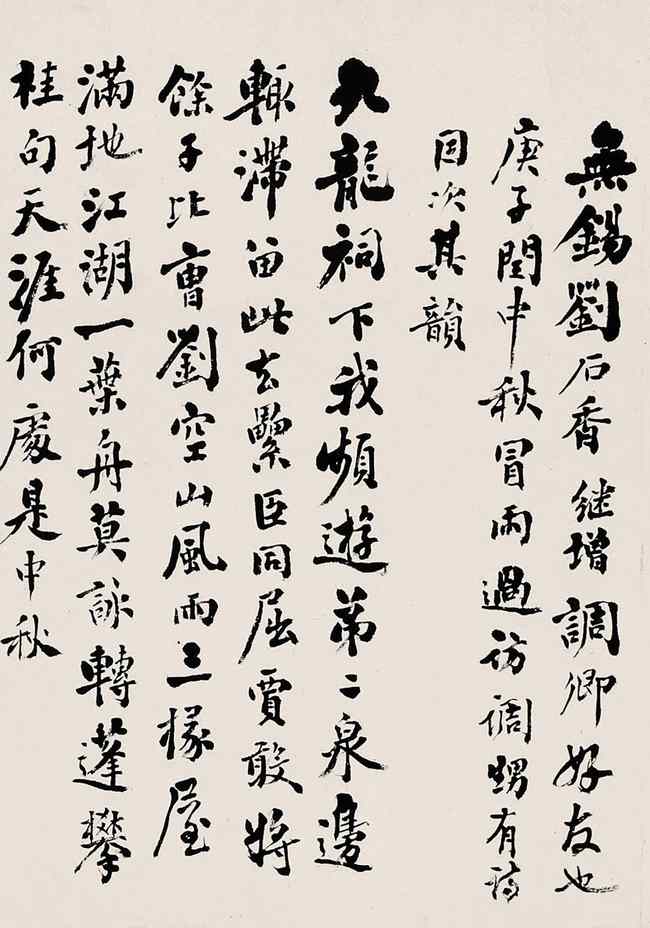 無錫劉石香继增調卿好友也
庚子閏中秋冒雨過訪倜甥有詩
因次其韻
九龍祠下我頻遊第二泉邊
輒滯留此去纍臣同屈賈敢將
餘子比曹劉空山風雨三椽屋
滿地江湖一葉舟莫詠轉蓬攀
桂句天涯何處是中秋